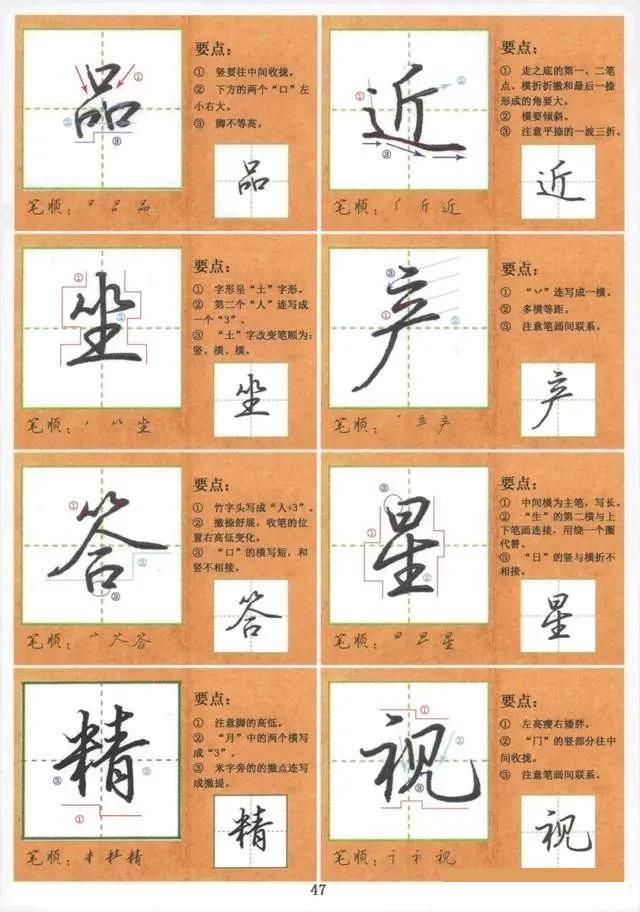 品
要点：
① 竖要往中间收拢。
② 下方的两个“口”左
小右大。
③ 脚不等高。
品
笔顺：
品
近
要点：
① 走之底的第一、二笔
点、横折折撇和最后一捺
形成的角要大。
② 横要倾斜。
③ 注意平捺的一波三折。
近
笔顺：
斤 近
坐
要点：
① 字形呈“土”字形。
② 第二个“人”连写成
一个“3”。
③ “土”字改变笔顺为：
竖、横、横。
坐
笔顺：
坐
产
要点：
① “丷”连写成一横。
② 多横等距。
③ 注意笔画间联系。
产
笔顺：
产
答
要点：
① 竹字头写成“人+3”。
② 撇捺舒展，收笔的位
置右高低变化。
③ “口”的横写短，和
竖不相接。
答
笔顺：
答
星
要点：
① 中间横为主笔，写长。
② “生”的第二横与上
下笔画连接，用绕一个圈
代替。
③ “日”的竖与横折不
相接。
星
笔顺：
星
精
要点：
① 注意脚的高低。
② “月”中的两个横写
成“3”。
③ 米字旁的的撇点连写
成撇提。
精
笔顺：
精
视
要点：
① 左高瘦右矮胖。
② “冂”的竖部分往中
间收拢。
③ 注意笔画间联系。
视
笔顺：
视
47